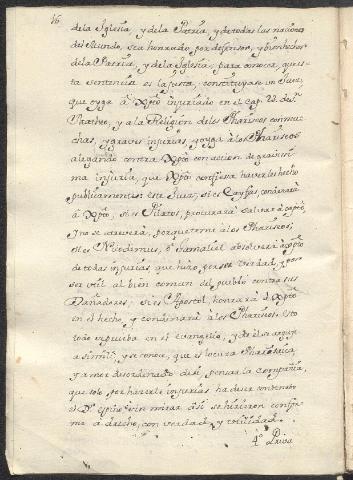 16
de la Iglesia, y de la Patria, y de todas las naciones
del Mundo, sea honrado, por defensor, y bienhechor
de la Patria, y de la Iglesia; para conocer, que es-
ta sentencia es la justa, constituyase un Juez,
que oyga á Xpto injuriado en el cap. 23. de S.
Matheo, y a la Religion de los Phariseos con mu-
chas, y graves injurias, y oyga à los Phariseos
alegando contra Xpto con accion de gravissi-
ma injuria, que Xpto confiessa haverles hecho
publicamente: este Juez, si es Cayfas, condenarà
à Xpto; si es Pilatos, procurarà salvar à Xpto,
y no se atreverà, porque teme à los Phariseos;
si es Nicodemus, ò Gamaliel absolverà à Xpto
de todas injurias, que hizo, por ser verdad, y por
ser util al bien comun del pueblo contra sus
Dañadores; si es Apostol, honrarà à Xpto
en el hecho, y condenarà à los Phariseos. Esto
todo es prueba en el evangelio, y de èl se arguye
à simili, y se conoce, que es locura Pharisaica,
y amor desordenado de si pensar la Compañia,
que solo por hacerle injurias ha de ser condenado
el D. Espino sin mirar, si se hicieron confor-
me a derecho, con verdad, y utilidad.
4.º Priva